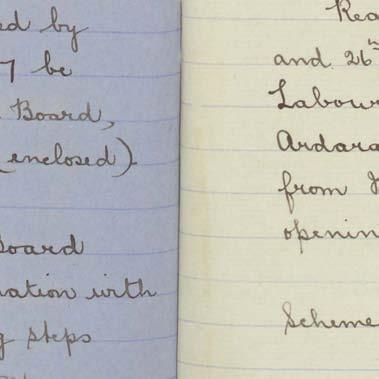 ed by
7 be
Board,
(enclosed).
Board
ation with
g steps
Rea
and 26th
Labour
Ardara
from
openin
Scheme